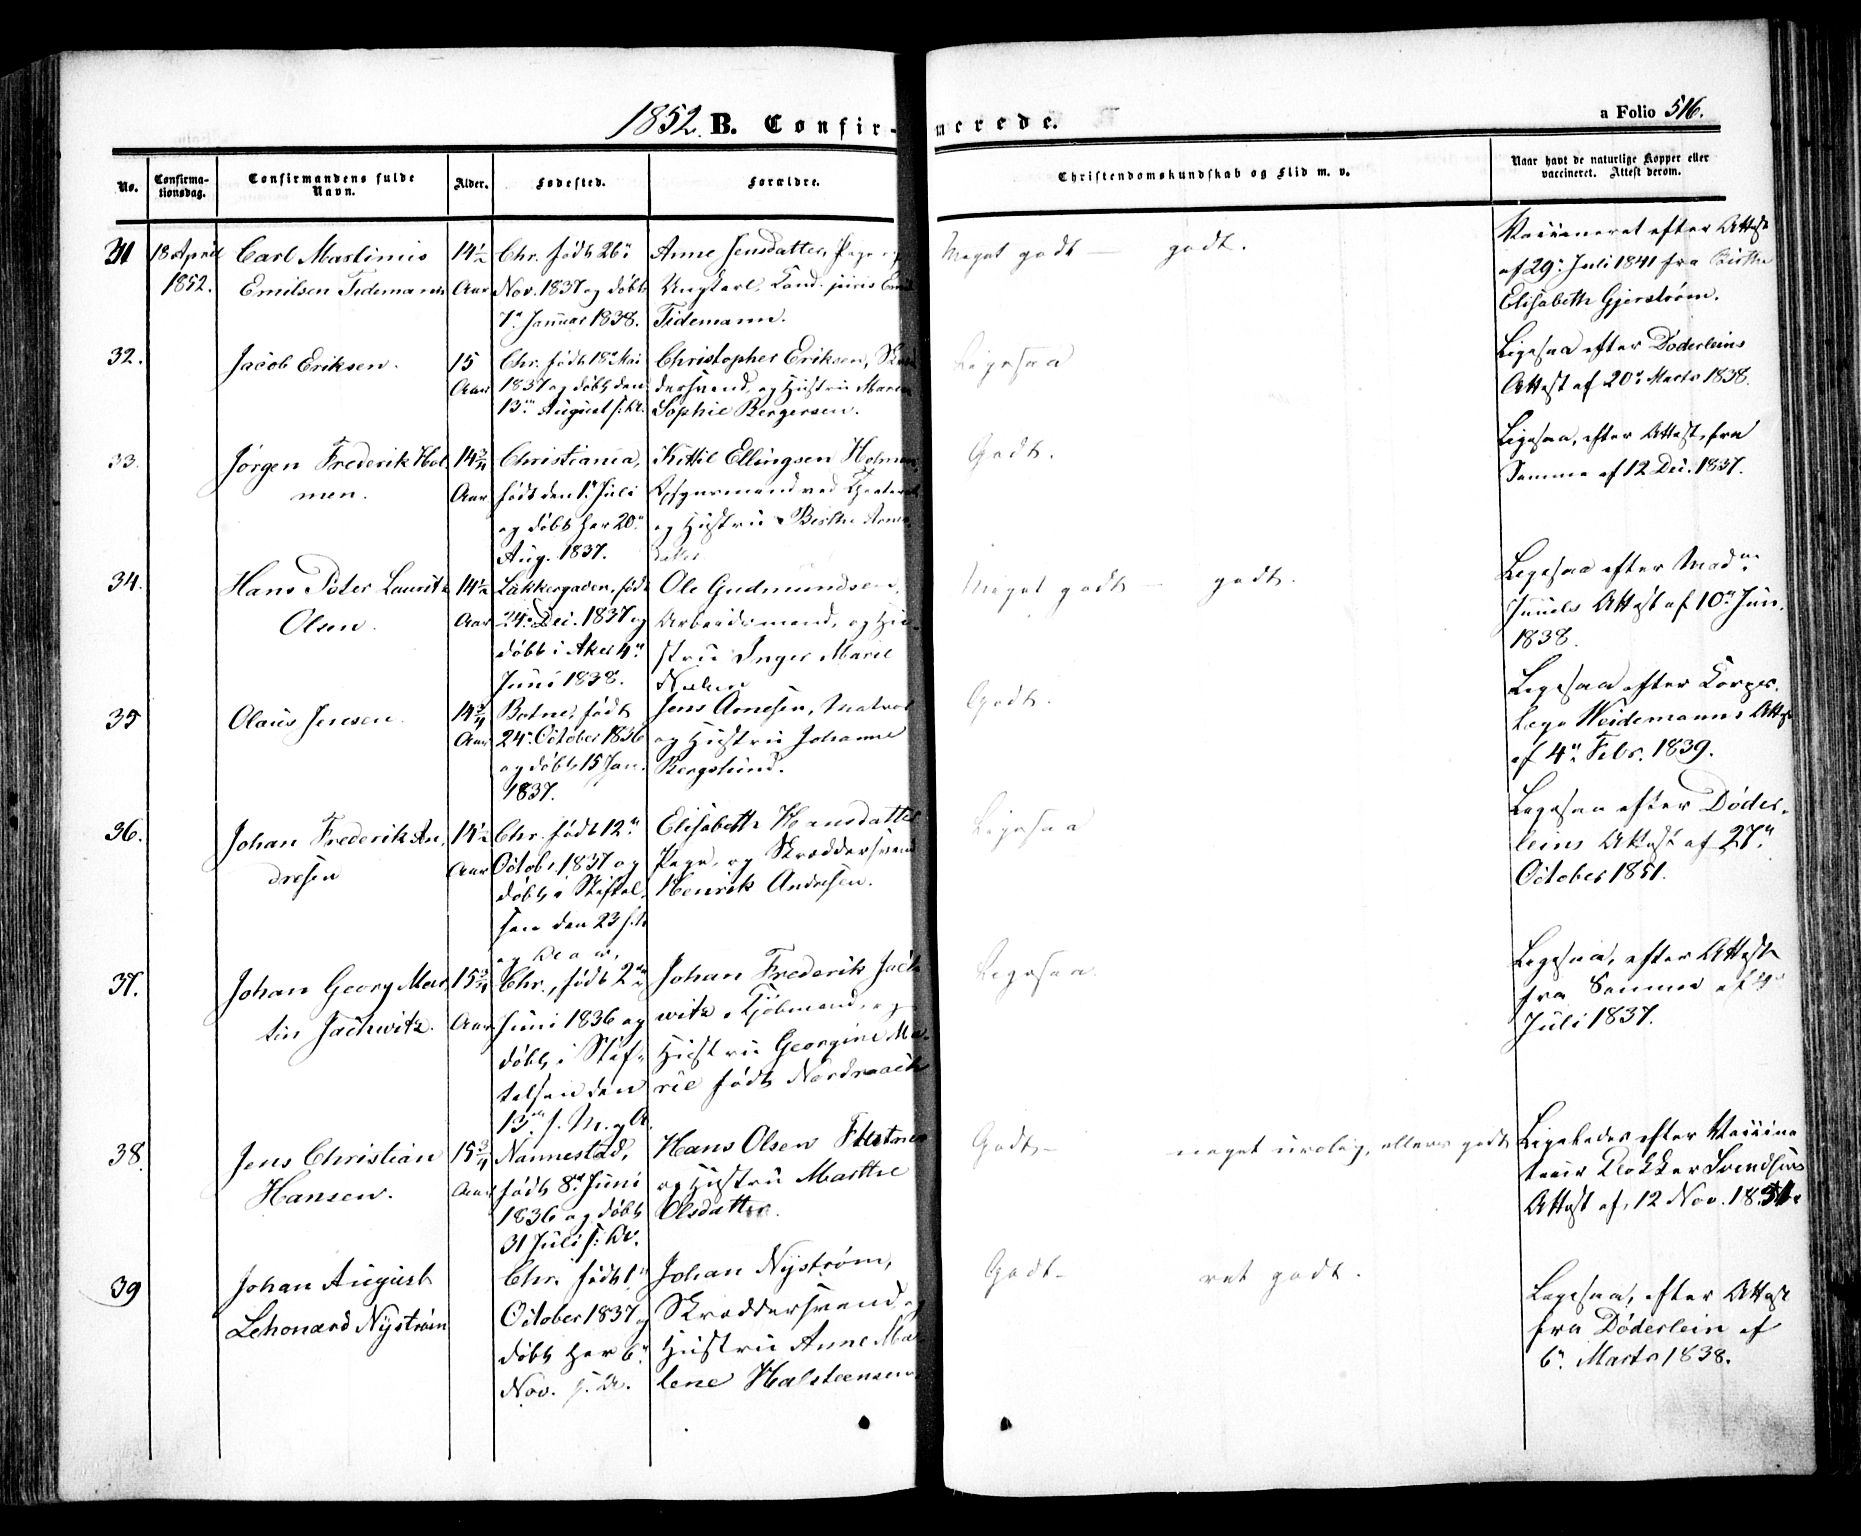 1852. B. Confirmerede.
a Folio 516.
No.
Confirma-
tionsdag.
Confirmandens fulde
Navn.
Alder.
Fødested.
Forældre.
Christendomskundskab og Flid m. v.
Naar havt de naturlige Kopper eller
vaccineret. Attest derom.
31 18 April
1852.
Carl Martinius
Emilsen Tidemann
14½
Aar
Chr. født 26de
Nov. 1837 og døbt
7de Januar 1838.
Anne Jensdatter, Pige og
Ungkarl, Cand. juris Emil
Tidemann.
Meget godt — godt.
Vaccineret efter Attest
af 29de Juli 1841 fra Birthe
Elisabeth Gjerstrøm.
32.
Jacob Eriksen.
15
Aar
Chr. født 18de Mai
1837 og døbt den
13de August s: A.
Christopher Eriksen, Skræd
dersvend, og Hustru Maren
Sophie Bergersen.
Ligesaa
Ligesaa efter Døderleins
Attest af 20de Marts 1838.
33.
Jørgen Frederik Hol
men.
14¾
Aar
Christiania,
født den 1de Juli
og døbt her 20de
Aug. 1837.
Kittil Ellingsen Holmen,
Opsynsmand ved Theatret
og Hustru Birthe Arne
datter
Godt.
Ligesaa, efter Attest fra
Samme af 12 Dec. 1837.
34.
Hans Peter Lauritz
Olsen.
14½
Aar
Lakkergaden, født
24de Dec. 1837 og
døbt i Aker 4de
Juni 1838.
Ole Gudmundsen,
Arbeidsmand, og Hu-
stru Inger Marie
Meget godt — godt.
Ligesaa efter Madme
Juuels Attest af 10de Jun.
1838.
35
Olaus Jensen.
14¾
Aar
Botne, født
24de October 1836
og døbt 15 Jan.
1837.
Jens Arnesen, Matros
og Hustru Johanne
Bergslund.
Godt.
Ligesaa efter Corps-
læge Weidemanns Attest
af 4de Febr. 1839.
36.
Johan Frederik An
dresen
14½
Aar
Chr. født 12de
Octob. 1837 og
døbt i Stiftel-
sen den 23 s. M.
og Aar.
Elisabeth Hansdatter
Pige, og Skræddersvend
Henrik Andresen.
Ligesaa
Ligesaa efter Døder-
leins Attest af 27de
October 1851.
37.
Johan Georg Mar
tin Jachwitz.
15¾
Aar
Chr., født 2de
Juni 1836 og
døbt i Stif-
telsen den
13de s. M. og A.
Johan Frederik Jach
witz, Kjøbmand, og
Hustru Georgine Ma-
rie født Nordraach
Ligesaa.
Ligesaa, efter Attest
fra Samme af
Juli 1837.
38.
Jens Christian
Hansen.
15¾
Aar
Nannestad,
født 8de Juni
1836 og døbt
31 Juli s: Av.
Hans Olsen
og Hustru Marthe
Olsdatter.
Godt — noget urolig, ellers godt
Ligeledes efter Vaccina
teur Klokker Svendsens
Attest af 12 Nov. 18
39
Johan August
Lehonard Nyström
Chr. født 1de
October 1837 og
døbt her 6de
Nov. s. A.
Johan Nystrøm,
Skræddersvend og
Hustru Anne Ma
lene Halsteensen
Godt — ret godt.
Ligesaa, efter Attest
fra Døderlein af
6de Marts 1838.